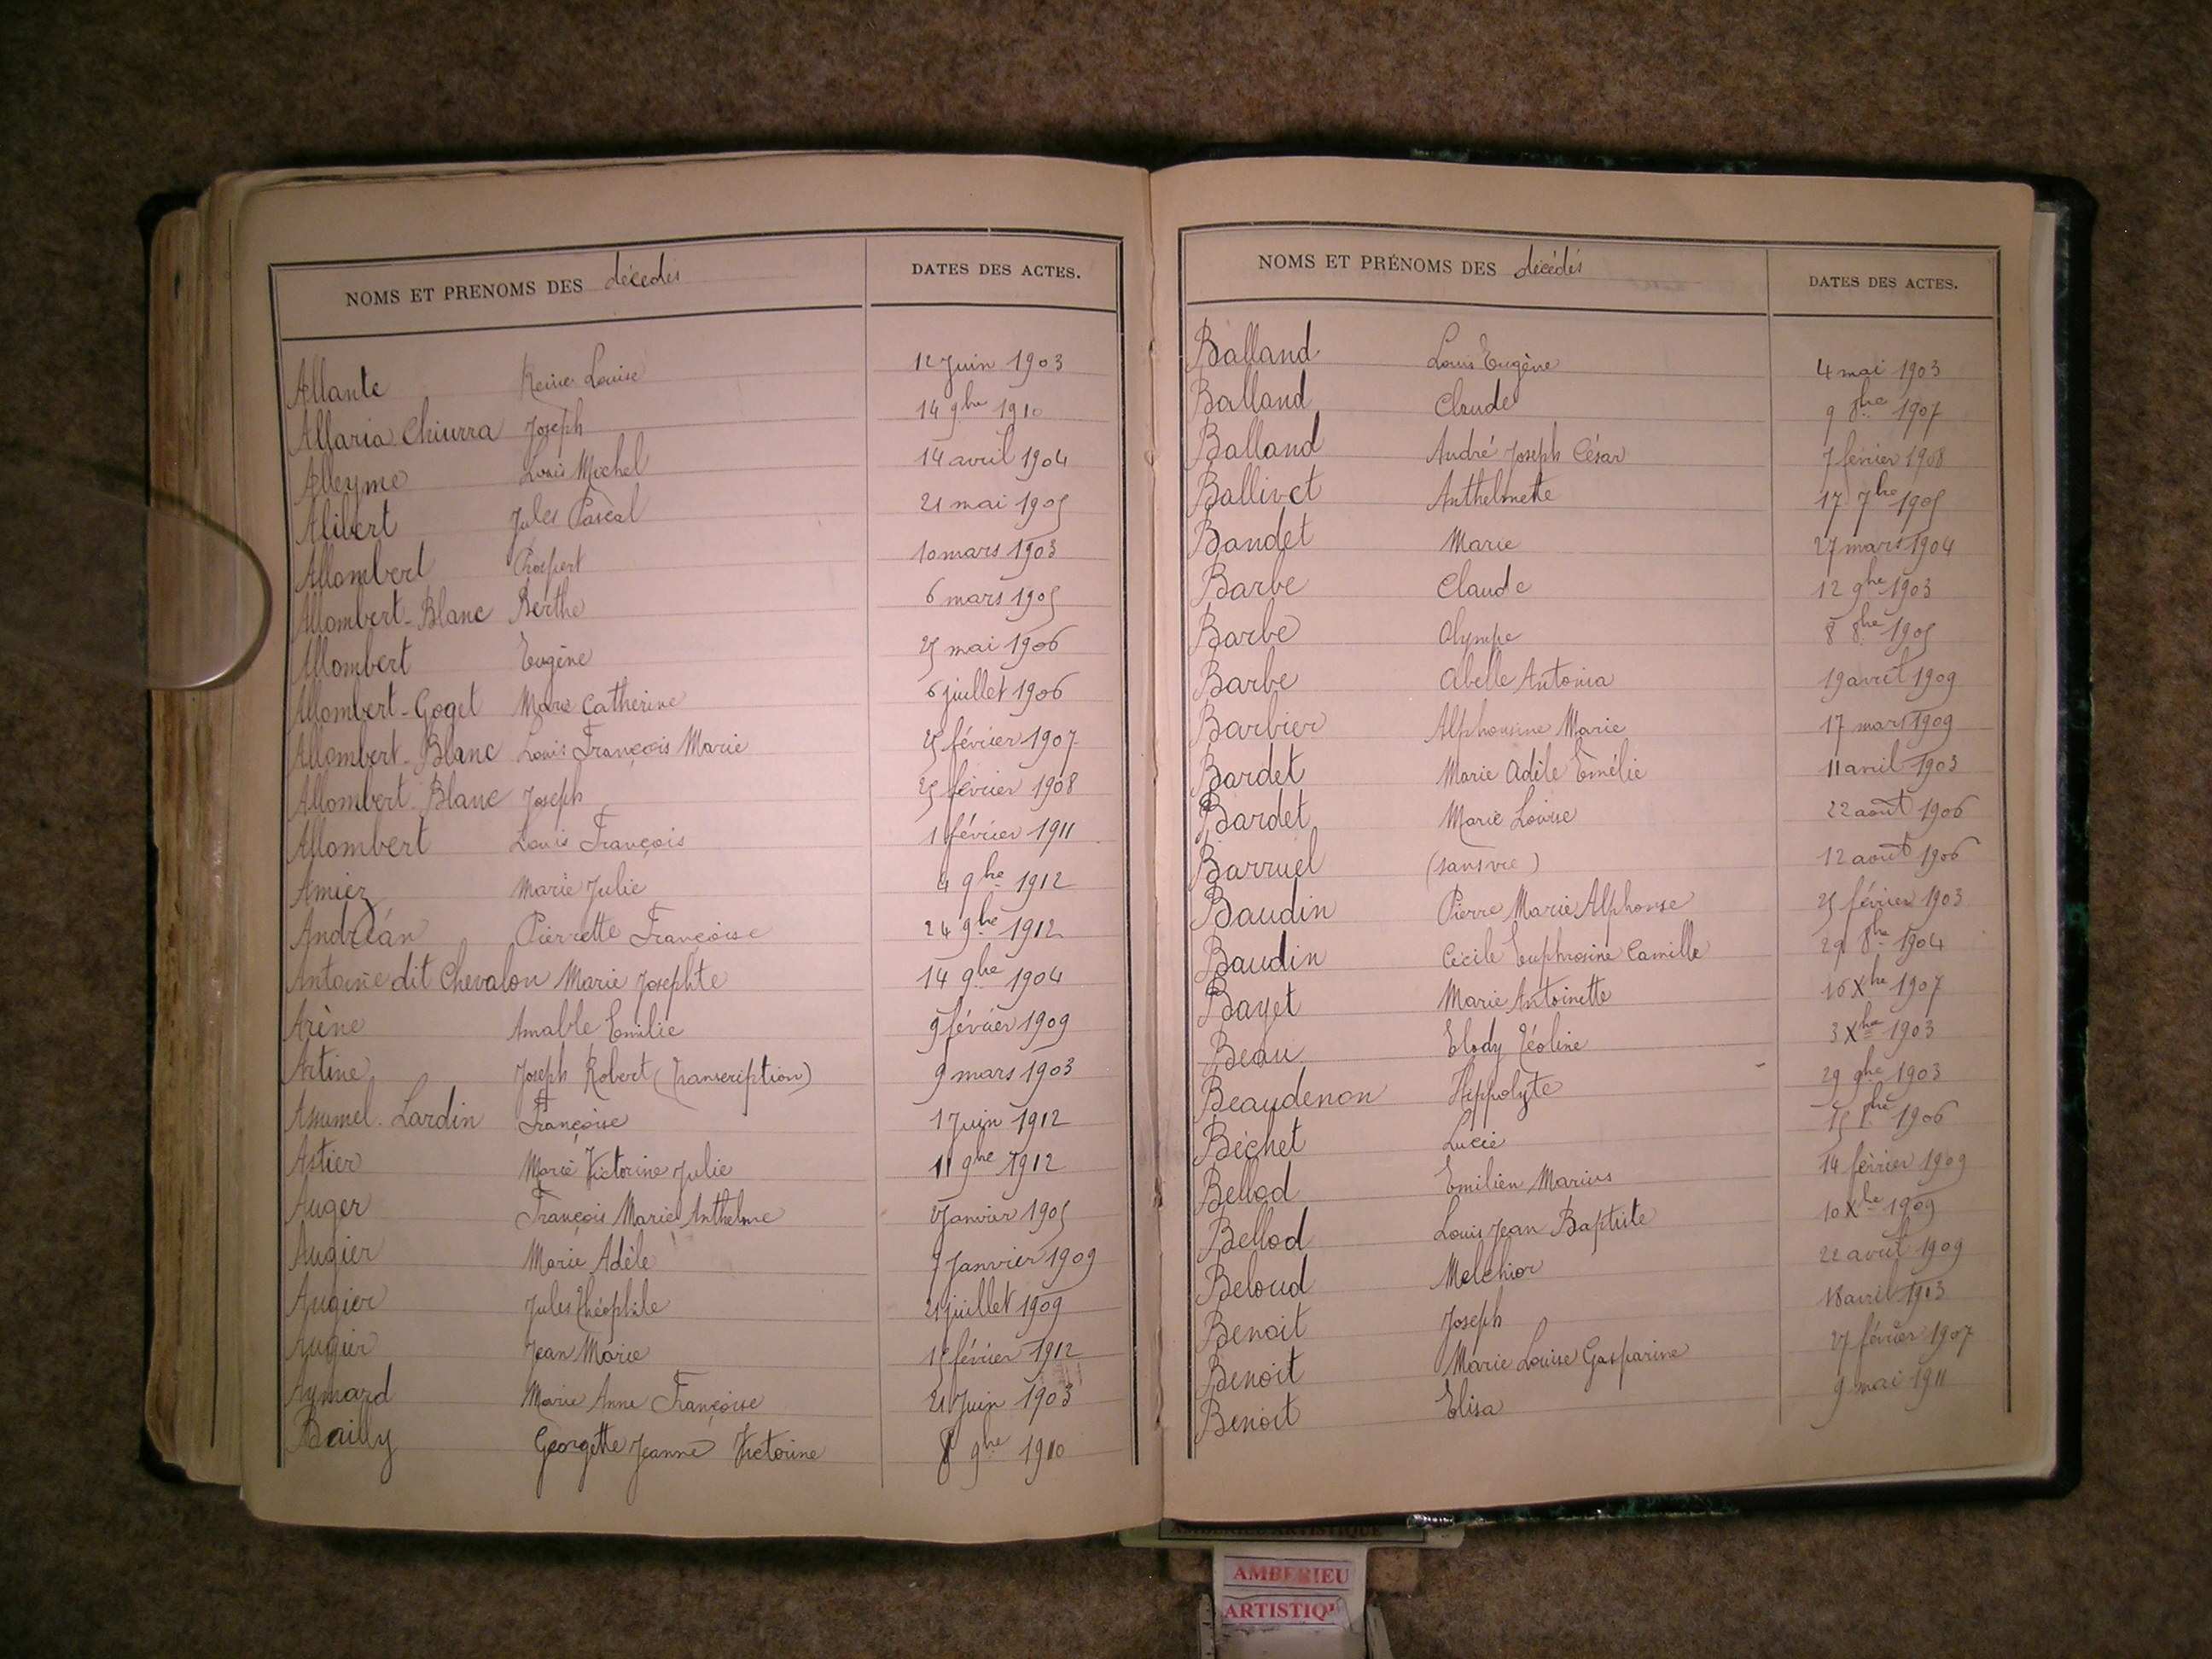 NOMS ET PRENOMS DES décédés DATES DES ACTES.
Allante Reine Louise 12 Juin 1903
Allaria Chiurra Joseph 14 9bre 1910
Alleyme Louis Michel 14 avril 1904
Alibert Jules Pascal 21 mai 1905
Allombert Prospert 10 mars 1903
Allombert-Blanc Berthe 6 mars 1905
Allombert Eugène 25 mai 1906
Allombert-Goget Marie Catherine 6 juillet 1906
Allombert-Blanc Louis François Marie 25 février 1907
Allombert-Blanc Joseph 25 février 1908
Allombert Louis François 1 février 1911
Amiez Marie Julie 4 9bre 1912
Andréan Pierrette Françoise 24 9bre 1912
Antoine dit Chevalon Marie Josephte 14 9bre 1904
Arène Amable Emilie 9 février 1909
Artine Joseph Robert (transcription) 9 mars 1903
Lardin Françoise 1 Juin 1912
Astier Marie Victorine Julie 11 9bre 1912
Auger François Marie Anthelme Janvier 1905
Augier Marie Adèle Janvier 1909
Augier Jules Théophile 21 juillet 1909
Augier Jean Marie 15 février 1912
Aymard Marie Anne Françoise 21 Juin 1903
Bailly Georgette Jeanne Victorine 8 9bre 1910
NOMS ET PRÉNOMS DES décédés DATES DES ACTES.
Balland Louis Eugène 4 mai 1903
Balland Claude 9 8bre 1907
Balland André Joseph César 7 février 1908
Ballivet Anthelmette 17 7bre 1905
Bandet Marie 27 mars 1904
Barbe Claude 12 9bre 1903
Barbe Olympe 8 8bre 1905
Barbe Abelle Antonia 19 avril 1909
Barbier Alphonsine Marie 17 mars 1909
Bardet Marie Adèle Emélie 11 avril 1903
Bardet Marie Louise 22 août 1906
Barruel (sans vie) 12 août 1906
Baudin Pierre Marie Alphonse 25 février 1903
Baudin Cécile Euphrosine Camille 29 8bre 1904
Bayet Marie Antoinette 16 Xbre 1907
Beau Elody Zéoline 3 Xbre 1903
Beaudenon Hippolyte 29 9bre 1903
Béchet Lucie 15 8bre 1906
Bellod Emilien Marius 14 février 1909
Bellod Louis Jean Baptiste 10 Xbre 1909
Beloud Melchior 22 août 1909
Benoit Joseph 18 avril 1903
Benoit Marie Louise Gasparine 27 février 1907
Benoit Elisa 9 mai 1911
AMBERIEU ARTISTIQUE
AMBERIEU
ARTISTIQU